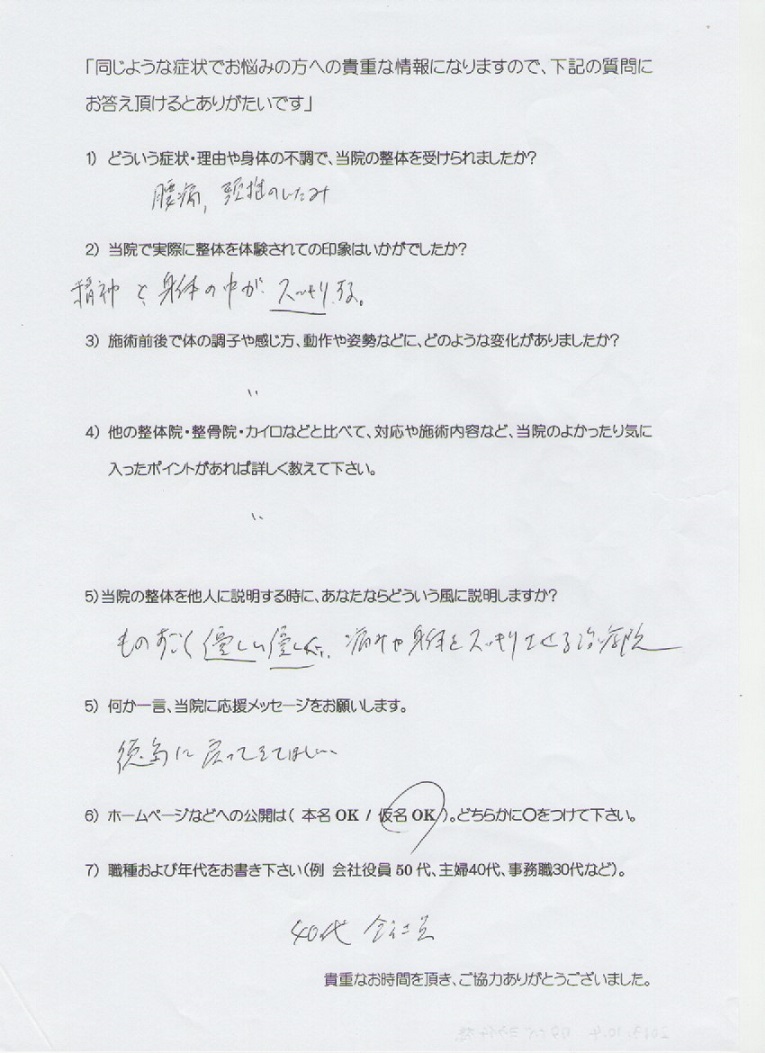 「同じような症状でお悩みの方への貴重な情報になりますので、下記の質問に
お答え頂けるとありがたいです」
1) どういう症状・理由や身体の不調で、当院の整体を受けられましたか?
腰痛, 頚椎のいたみ
2) 当院で実際に整体を体験されての印象はいかがでしたか?
精神と身体の中がスッキリする。
3) 施術前後で体の調子や感じ方、動作や姿勢などに、どのような変化がありましたか?
〃
4) 他の整体院・整骨院・カイロなどと比べて、対応や施術内容など、当院のよかったり気に
入ったポイントがあれば詳しく教えて下さい。
〃
5)当院の整体を他人に説明する時に、あなたならどういう風に説明しますか?
ものすごく優しい優しい、痛みや身体をスッキリさせる治療院
5) 何か一言、当院に応援メッセージをお願いします。
徳島に戻ってきてほしい
6) ホームページなどへの公開は( 本名 OK / 仮名 OK )。どちらかに〇をつけて下さい。
7) 職種および年代をお書き下さい(例 会社役員 50 代、主婦40代、事務職30代など)。
40代 会社員
貴重なお時間を頂き、ご協力ありがとうございました。